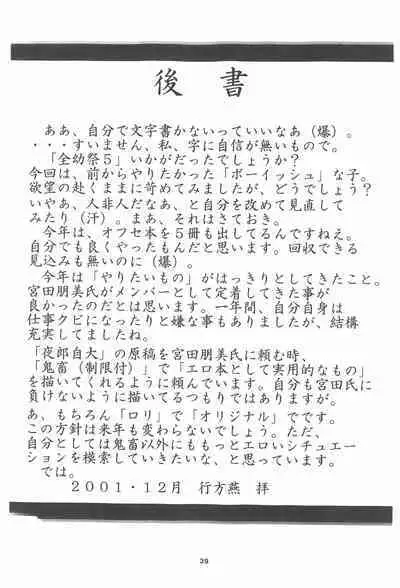 後書
ああ、自分で文字書かないっていいなあ（爆）。
・・・すいません、私、字に自信が無いもので。
「全幼祭５」いかがだったでしょうか？
今回は、前からやりたかった「ボーイッシュ」な子。
欲望の赴くままに苛めてみましたが、どうでしょう？
いやあ、人非人だなあ、と自分を改めて見直して
みたり（汗）。まあ、それはさておき。
今年は、オフセ本を５冊も出してるんですねえ。
自分でも良くやったもんだと思います。回収できる
見込みも無いのに（爆）。
今年は「やりたいもの」がはっきりとしてきたこと。
宮田朋美氏がメンバーとして定着してきた事が
良かったのだとは思います。一年間、自分自身は
仕事クビになったりと嫌な事もありましたが、結構
充実してましたね。
「夜郎自大」の原稿を宮田朋美氏に頼む時、
「鬼畜（制限付）」で「エロ本として実用的なもの」
を描いてくれるように頼んでいます。自分も宮田氏に
負けないように描いてるつもりではありますが。
あ、もちろん「ロリ」で「オリジナル」でです。
この方針は来年も変わらないでしょう。ただ、
自分としては鬼畜以外にももっとエロいシチュエー
ションを模索していきたいな、と思っています。
では。
２００１・１２月 行方燕 拝
39